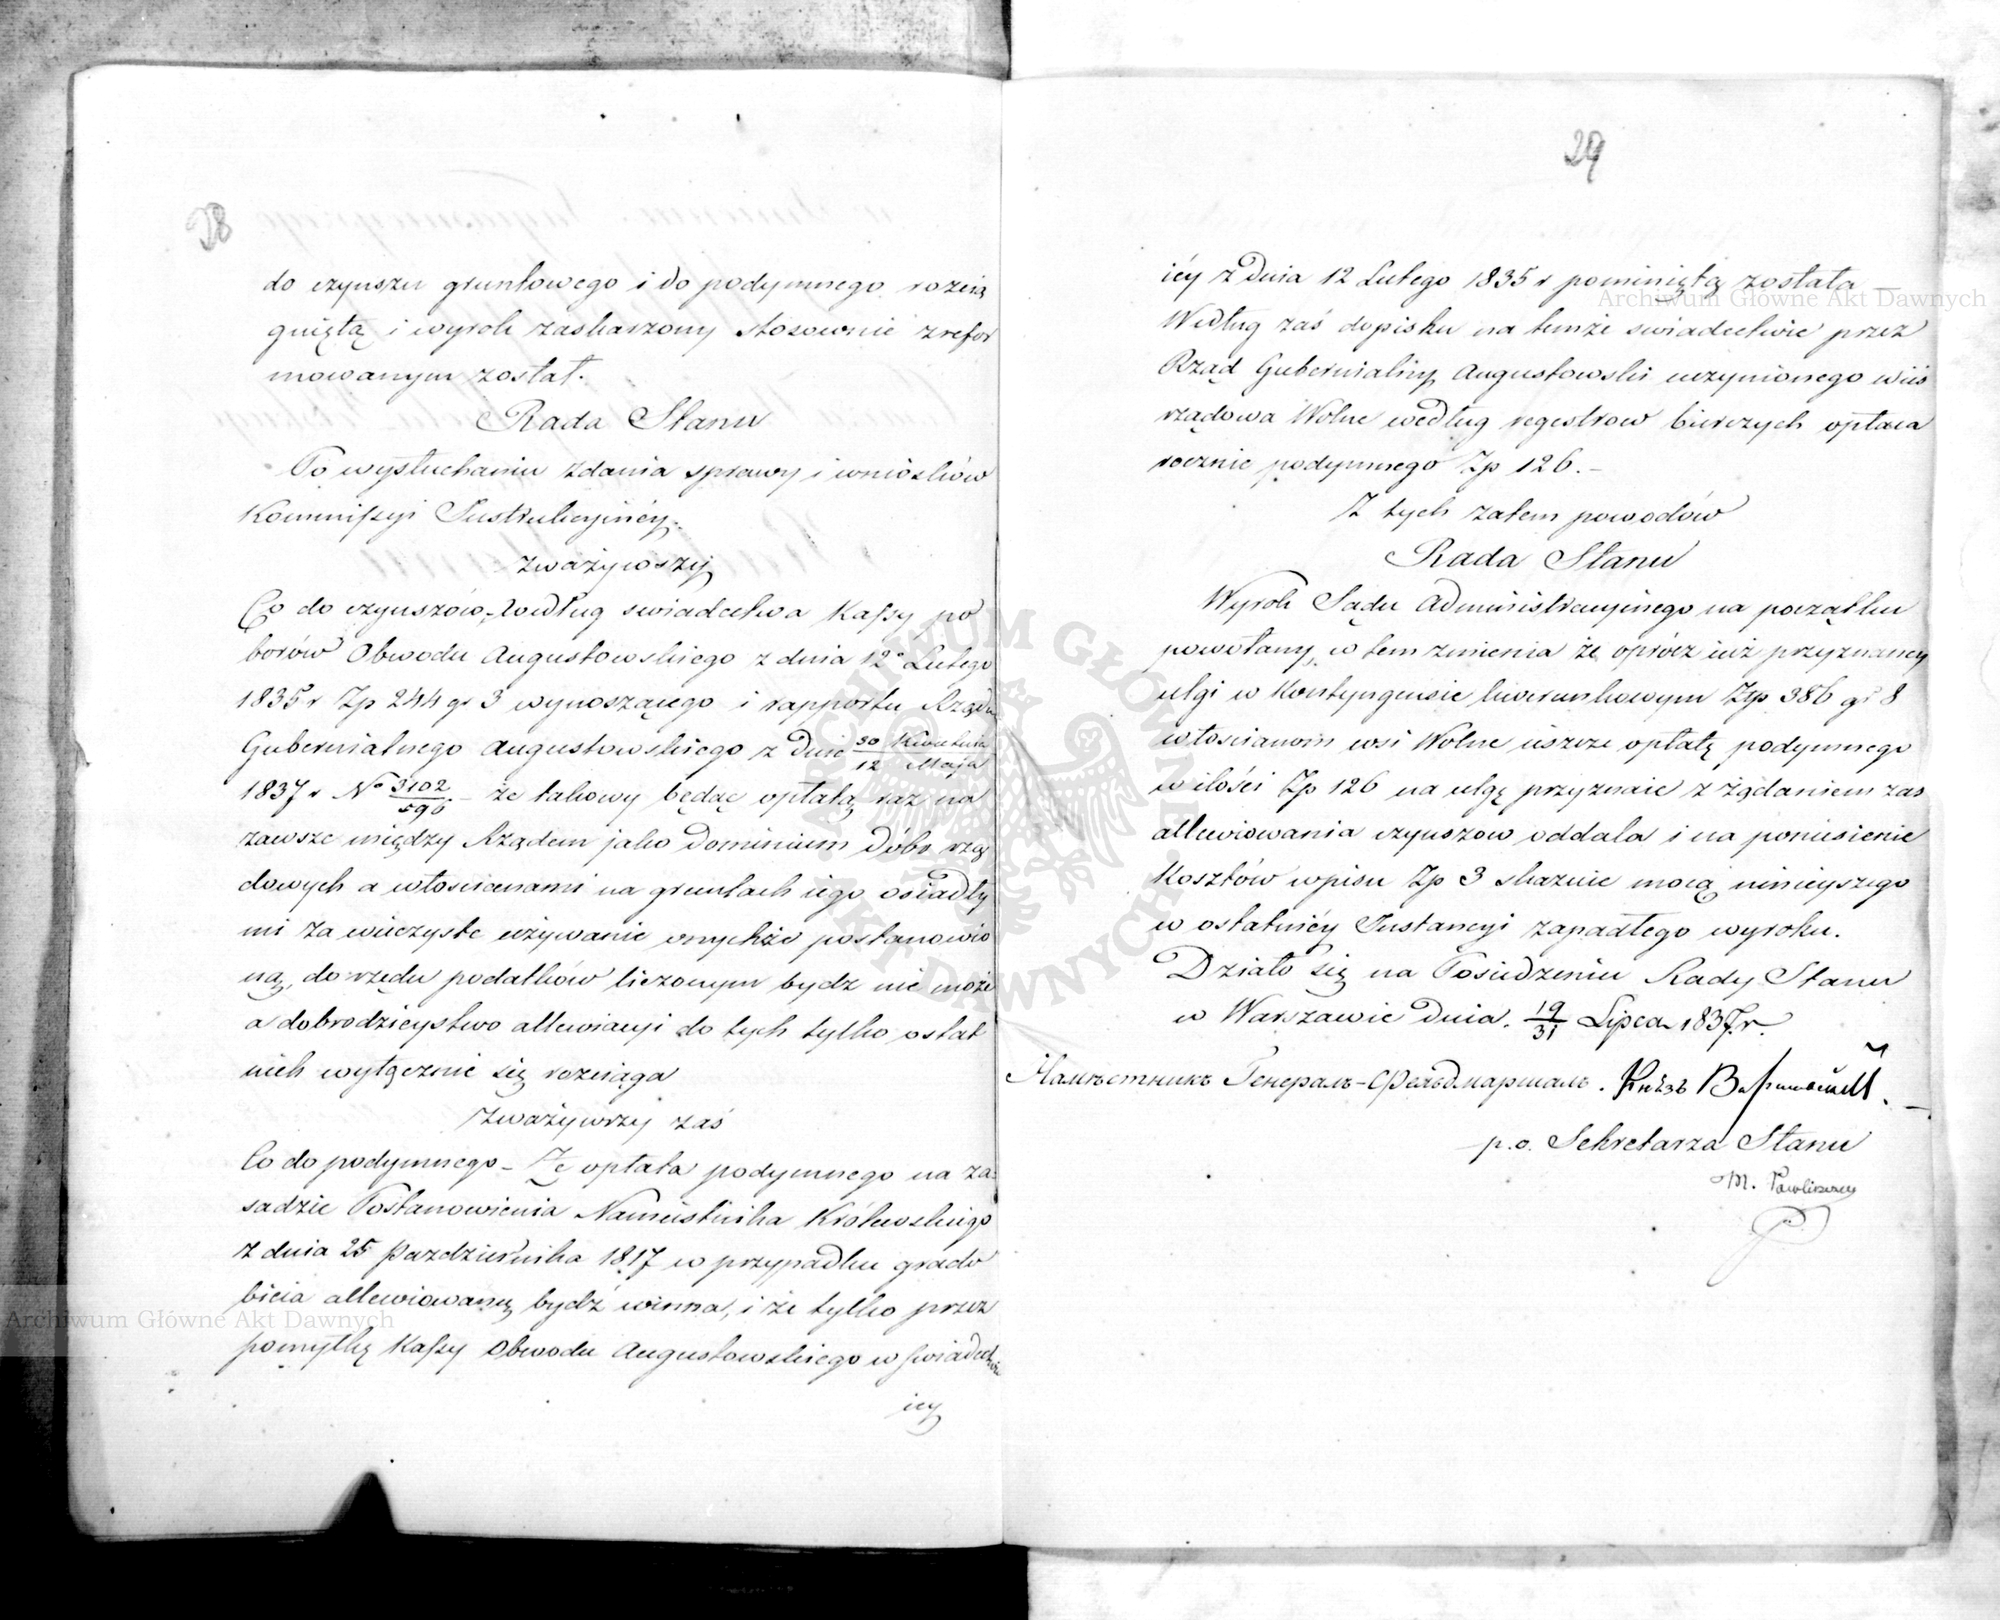 28
do czynszu gruntowego i do podymnego rozcią
gniętą i wyrok zaskarzony stosownie zrefor
mowanym został.
Rada Stanu
Po wysłuchaniu zdania sprawy i wniosków
Kommissyi Instrukcyinéy.
Zważywszy
Co do czynszów, według swiadectwa Kassy po
borów Obwodu Augustowskiego z dnia 12º Lutego
1835 r Zp 244 gr 3 wynoszącego i rapportu Rządu
Gubernialnego Augustowskiego z dnia 30 Kwietnia/12 Maja
1837 r Nº 3102/590 – że takowy będąc opłatą raz na
zawsze między Rządem jako Dominium Dóbr rzą
dowych a włoscianami na gruntach iego osiadły
mi za wieczyste używanie onychże postanowio
ną, do rzędu podatków liczonym bydz nie może
a dobrodzieystwo allewiacyi do tych tylko ostat
nich wyłącznie się rozciąga
Zważywszy zaś
Co do podymnego – Że opłata podymnego na za
sadzie Postanowienia Namiestnika Królewskiego
z dnia 25 Pazdziernika 1817 w przypadku grado
bicia allewiowaną bydź winna, i że tylko przez
pomyłkę Kassy Obwodu Augustowskiego w swiadectwie
iey
29
iéy z Dnia 12 Lutego 1835 r pominiętą została —
Według zaś dopisku na temże swiadectwie przez
Rząd Gubernialny Augustowski uczynionego wieś
rządowa Wolne według regestrow bierczych opłaca
rocznie podymnego Zp 126. –
Z tych zatem powodów
Rada Stanu
Wyrok Sądu Administracyinego na początku
powołany, w tem zmienia że oprócz iuż przyznaney
ulgi w Kontyngensie liwerunkowym Zp 386 gr 8
włoscianom wsi Wolne ieszcze opłatę podymnego
w ilości Zp 126 na ulgę przyznaie z żądaniem zas
allewiowania czynszow oddala i na poniesienie
Kosztów wpisu Zp 3 skazuie mocą ninieyszego
w ostatniéy Instancyi zapadłego wyroku.
Działo się na Posiedzeniu Rady Stanu
w Warszawie Dnia 19/31 Lipca 1837 r.
Намѣстникъ Генералъ-Фельдмаршалъ. Князь Варшавскій.
p.o. Sekretarza Stanu
M. Pawliszczew
Archiwum Główne Akt Dawnych
Archiwum Główne Akt Dawnych
ARCHIWUM GŁÓWNE AKT DAWNYCH